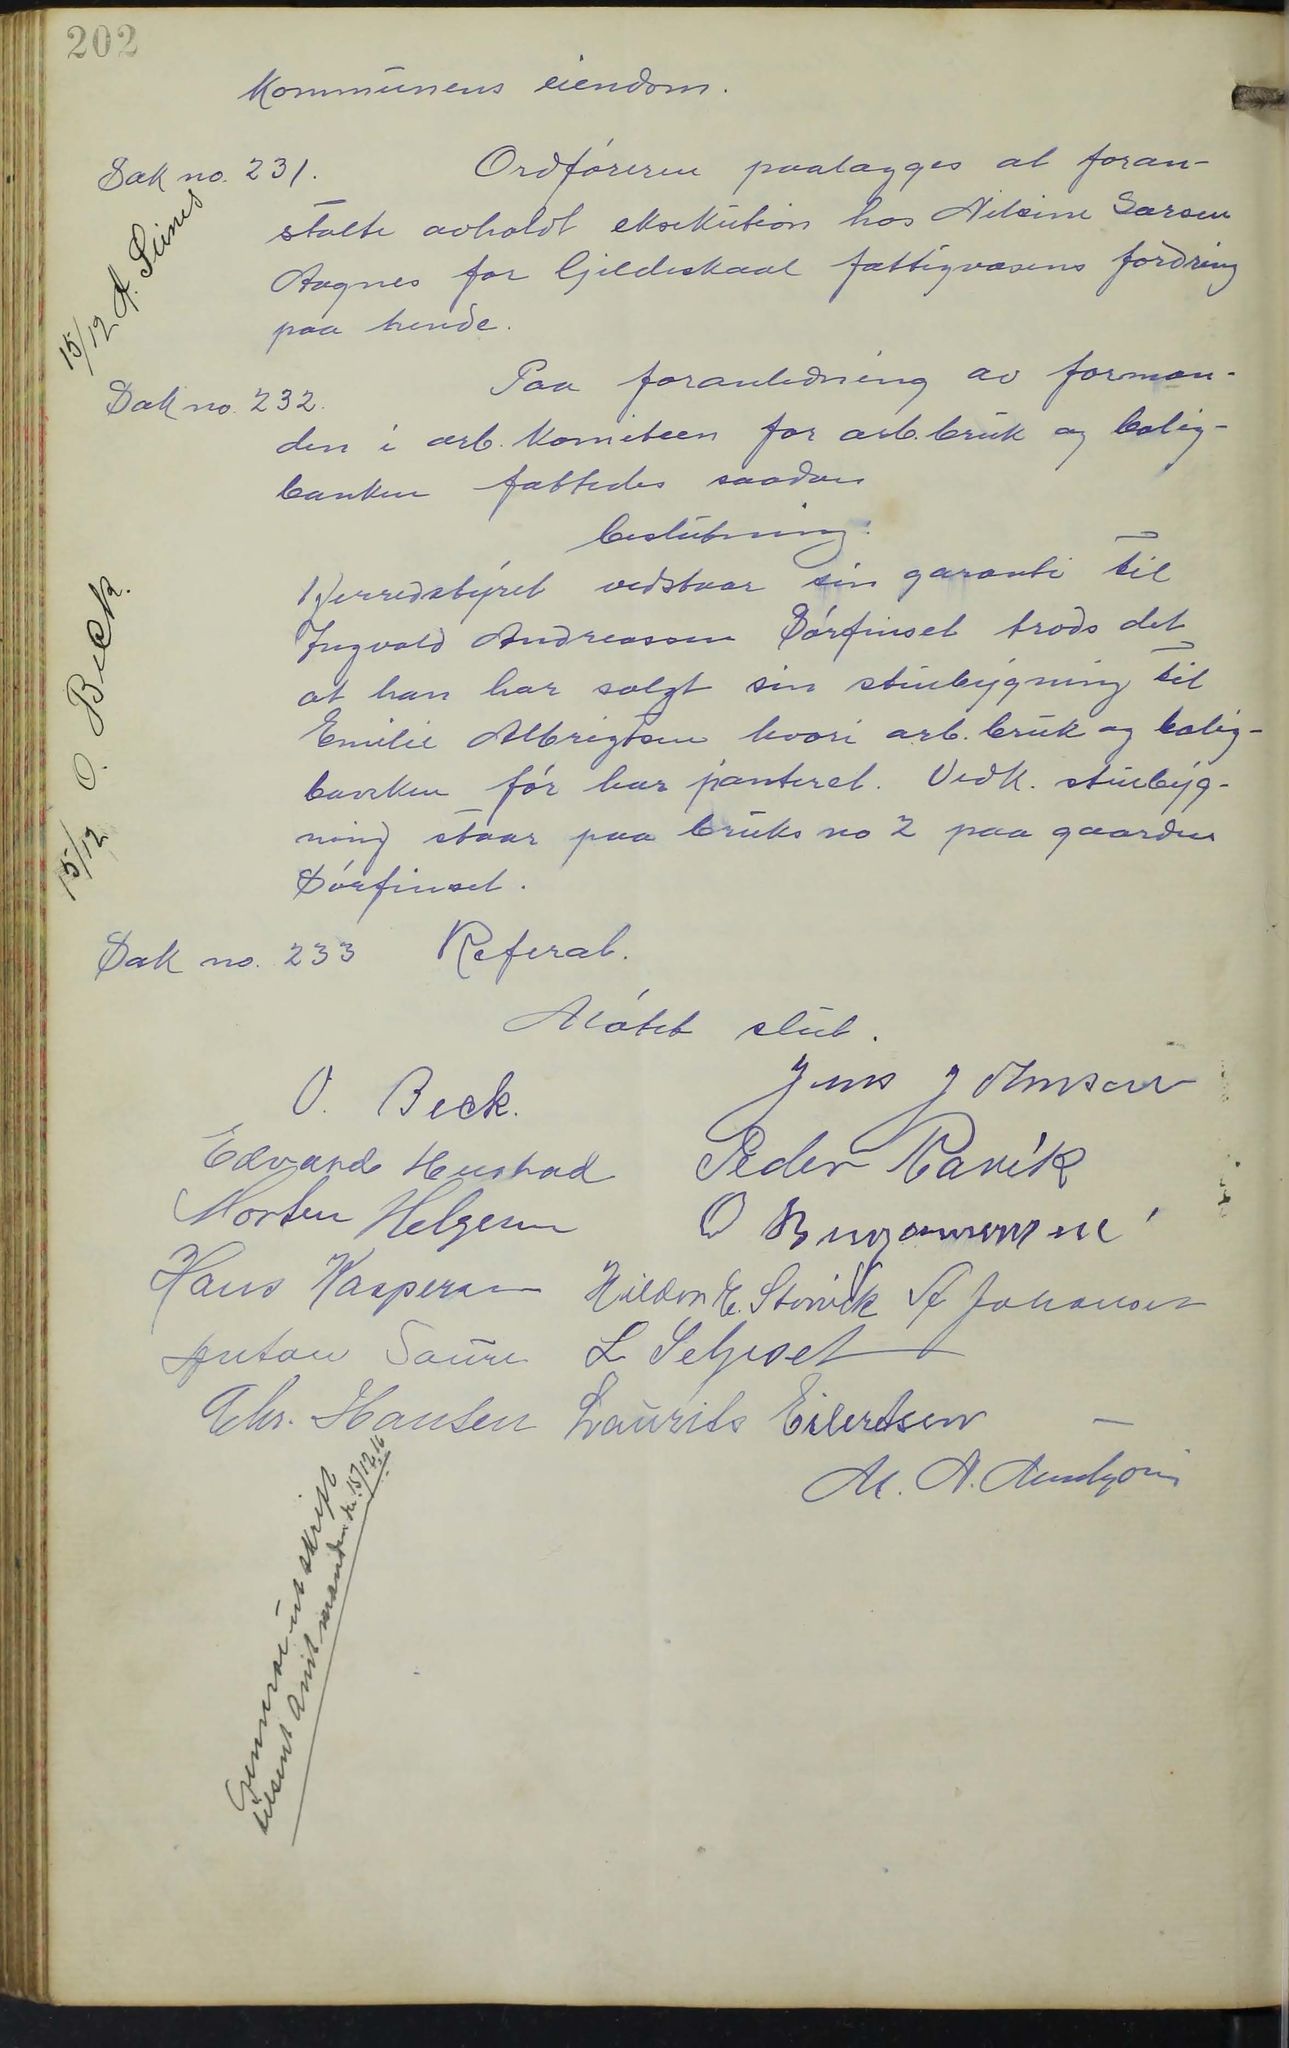 202
Kommunens eiendom.
Sak no. 231. Ordföreren paalægges at foran-
stalte avholdt eksekution hos Nilsine Larsen
Aagnes for Gildeskaal fattigvæsens fordring
paa hende.
15/12 A. Sünes
Sak no. 232. Paa foranledning av forman-
den i arb. komiteen for arb.bruk og bolig-
banken fattedes saadan
beslutning:
Herredstyret vedstaar sin garanti til
Ingvald Andreassen Sörfinset trods det
at han har solgt sin stuebygning til
Emilie Albrigtsen hvori arb. bruk og bolig-
banken för har panteret. Vedk. stuebyg-
ning staar paa bruks no 2 paa gaarden
Sörfinset.
15/12 O. Beck.
Sak no. 233 Referat.
Mötet slut.
O. Beck. Jens Johnsen
Edvard Hustad Peder Ravik
Morten Helgesen O
Hans Kaspersen Hilder E. Storvik A Johansen
Anton Saure L Seljeset
Chr. Hansen Laurits Eilertsen
M. A.
Generalutskrift
tilsendt Amtmanden den 15/12 16